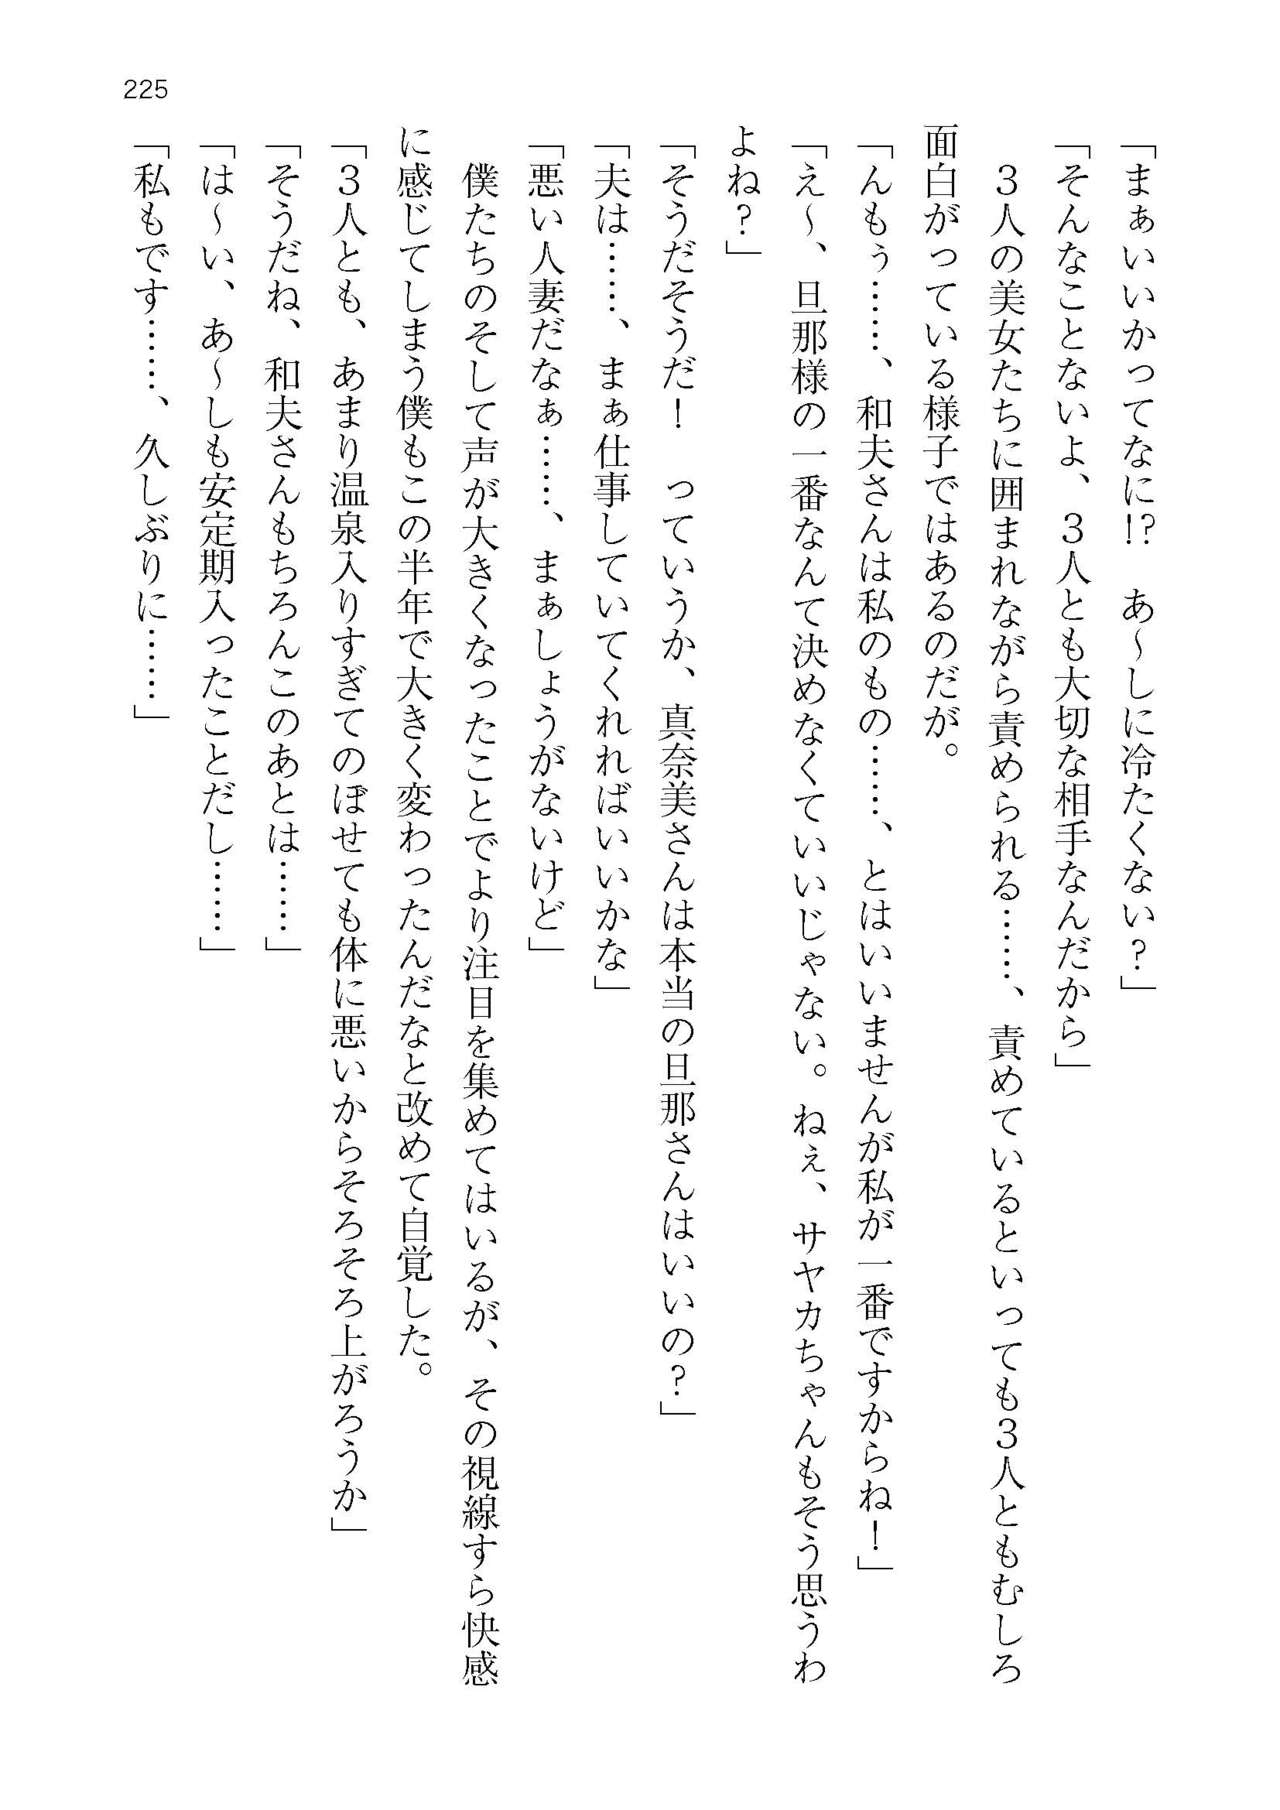 225
「まぁいいかってなに!?　あ～しに冷たくない？」
「そんなことないよ、３人とも大切な相手なんだから」
　３人の美女たちに囲まれながら責められる……、責めているといっても３人ともむしろ
面白がっている様子ではあるのだが。
「んもぅ……、和夫さんは私のもの……、とはいいませんが私が一番ですからね！」
「え～、旦那様の一番なんて決めなくていいじゃない。ねぇ、サヤカちゃんもそう思うわ
よね？」
「そうだそうだ！　っていうか、真奈美さんは本当の旦那さんはいいの？」
「夫は……、まぁ仕事していてくれればいいかな」
「悪い人妻だなぁ……、まぁしょうがないけど」
　僕たちのそして声が大きくなったことでより注目を集めてはいるが、その視線すら快感
に感じてしまう僕もこの半年で大きく変わったんだなと改めて自覚した。
「３人とも、あまり温泉入りすぎてのぼせても体に悪いからそろそろ上がろうか」
「そうだね、和夫さんもちろんこのあとは……」
「は～い、あ～しも安定期入ったことだし……」
「私もです……、久しぶりに……」